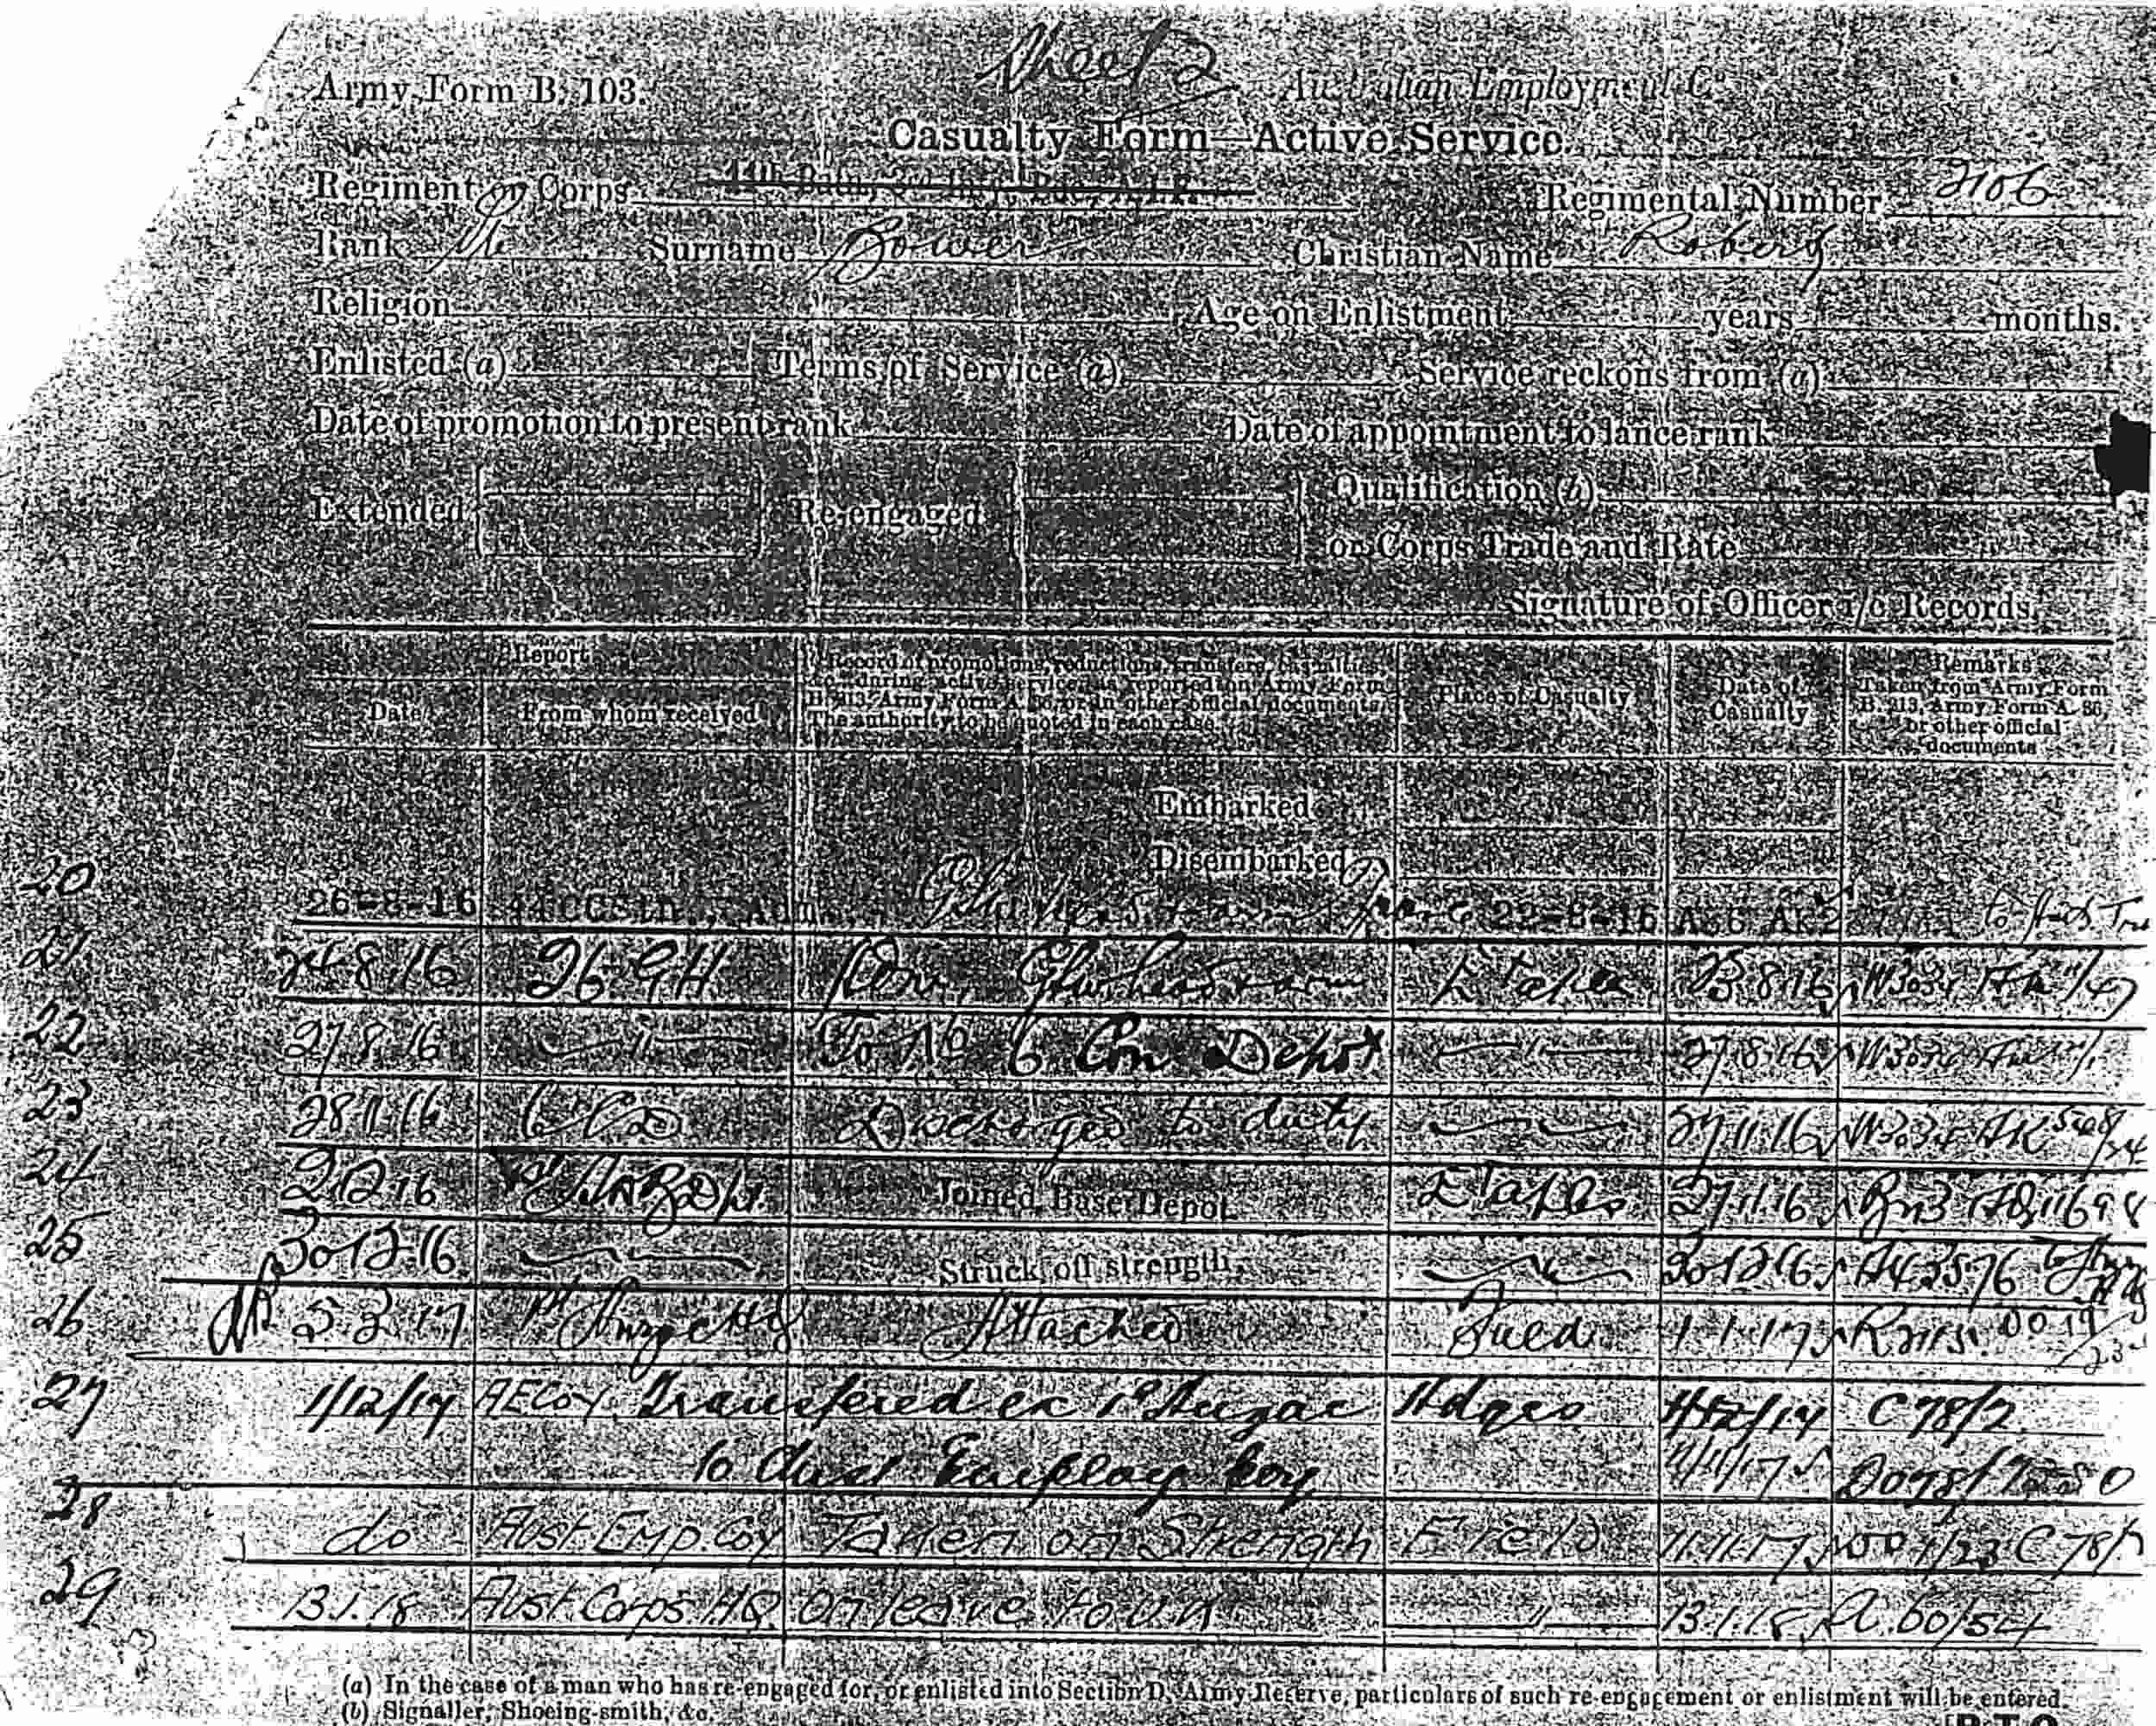 Sheet 2
Army Form B. 103.
Australian Employment Co
Casualty Form—Active Service.
Regiment or Corps 11th Batn, 3rd Inf. Bde, A.I.F. Regimental Number 2106
Rank Pte Surname Bower Christian Name Robert
Religion Age on Enlistment years months.
Enlisted (a) Terms of Service (a) Service reckons from (a)
Date of promotion to present rank Date of appointment to lance rank
Extended Re-engaged Qualification (b)
or Corps Trade and Rate
Signature of Officer i/c Records.
Report
Date From whom received
Record of promotions, reductions, transfers, casualties, &c. during active service, as reported on Army Form B. 213, Army Form A. 36, or in other official documents. The authority to be quoted in each case.
Place of Casualty
Date of Casualty
Remarks
Taken from Army Form B. 213, Army Form A. 36, or other official documents
Embarked
Disembarked
20 26-8-16 44CCStn., Adm., 22-8-16 A36
21 24.8.16 26 G.H. Etaples 23.8.16 W3034
22 27.8.16 " To No 6 Con Depot " 27.8.16 W3034
23 28.11.16 6 CD Discharged to duty 27.11.16 W3034
24 2.12.16 Joined Base Depot Etaples 27.11.16 11698
25 30.12.16 Struck off strength 30.12.16 A43576
26 5.3.17 1st Anzac HQ Attached Field 1.1.17
27 1/12/17 AECoy. Transfered ex 1st Anzac Hdqrs 1/12/17 C78/7
to Aust Employ Coy 11/11/17
28 do Aust Emp Coy Taken on Strength Field 11.11.17 C78/7
29 13.1.18 Aust Corps HQ On leave to U.K " 13.1.18 60/54
(a) In the case of a man who has re-engaged for, or enlisted into Section D, Army Reserve, particulars of such re-engagement or enlistment will be entered.
(b) Signaller, Shoeing-smith, &c.
[P.T.O.